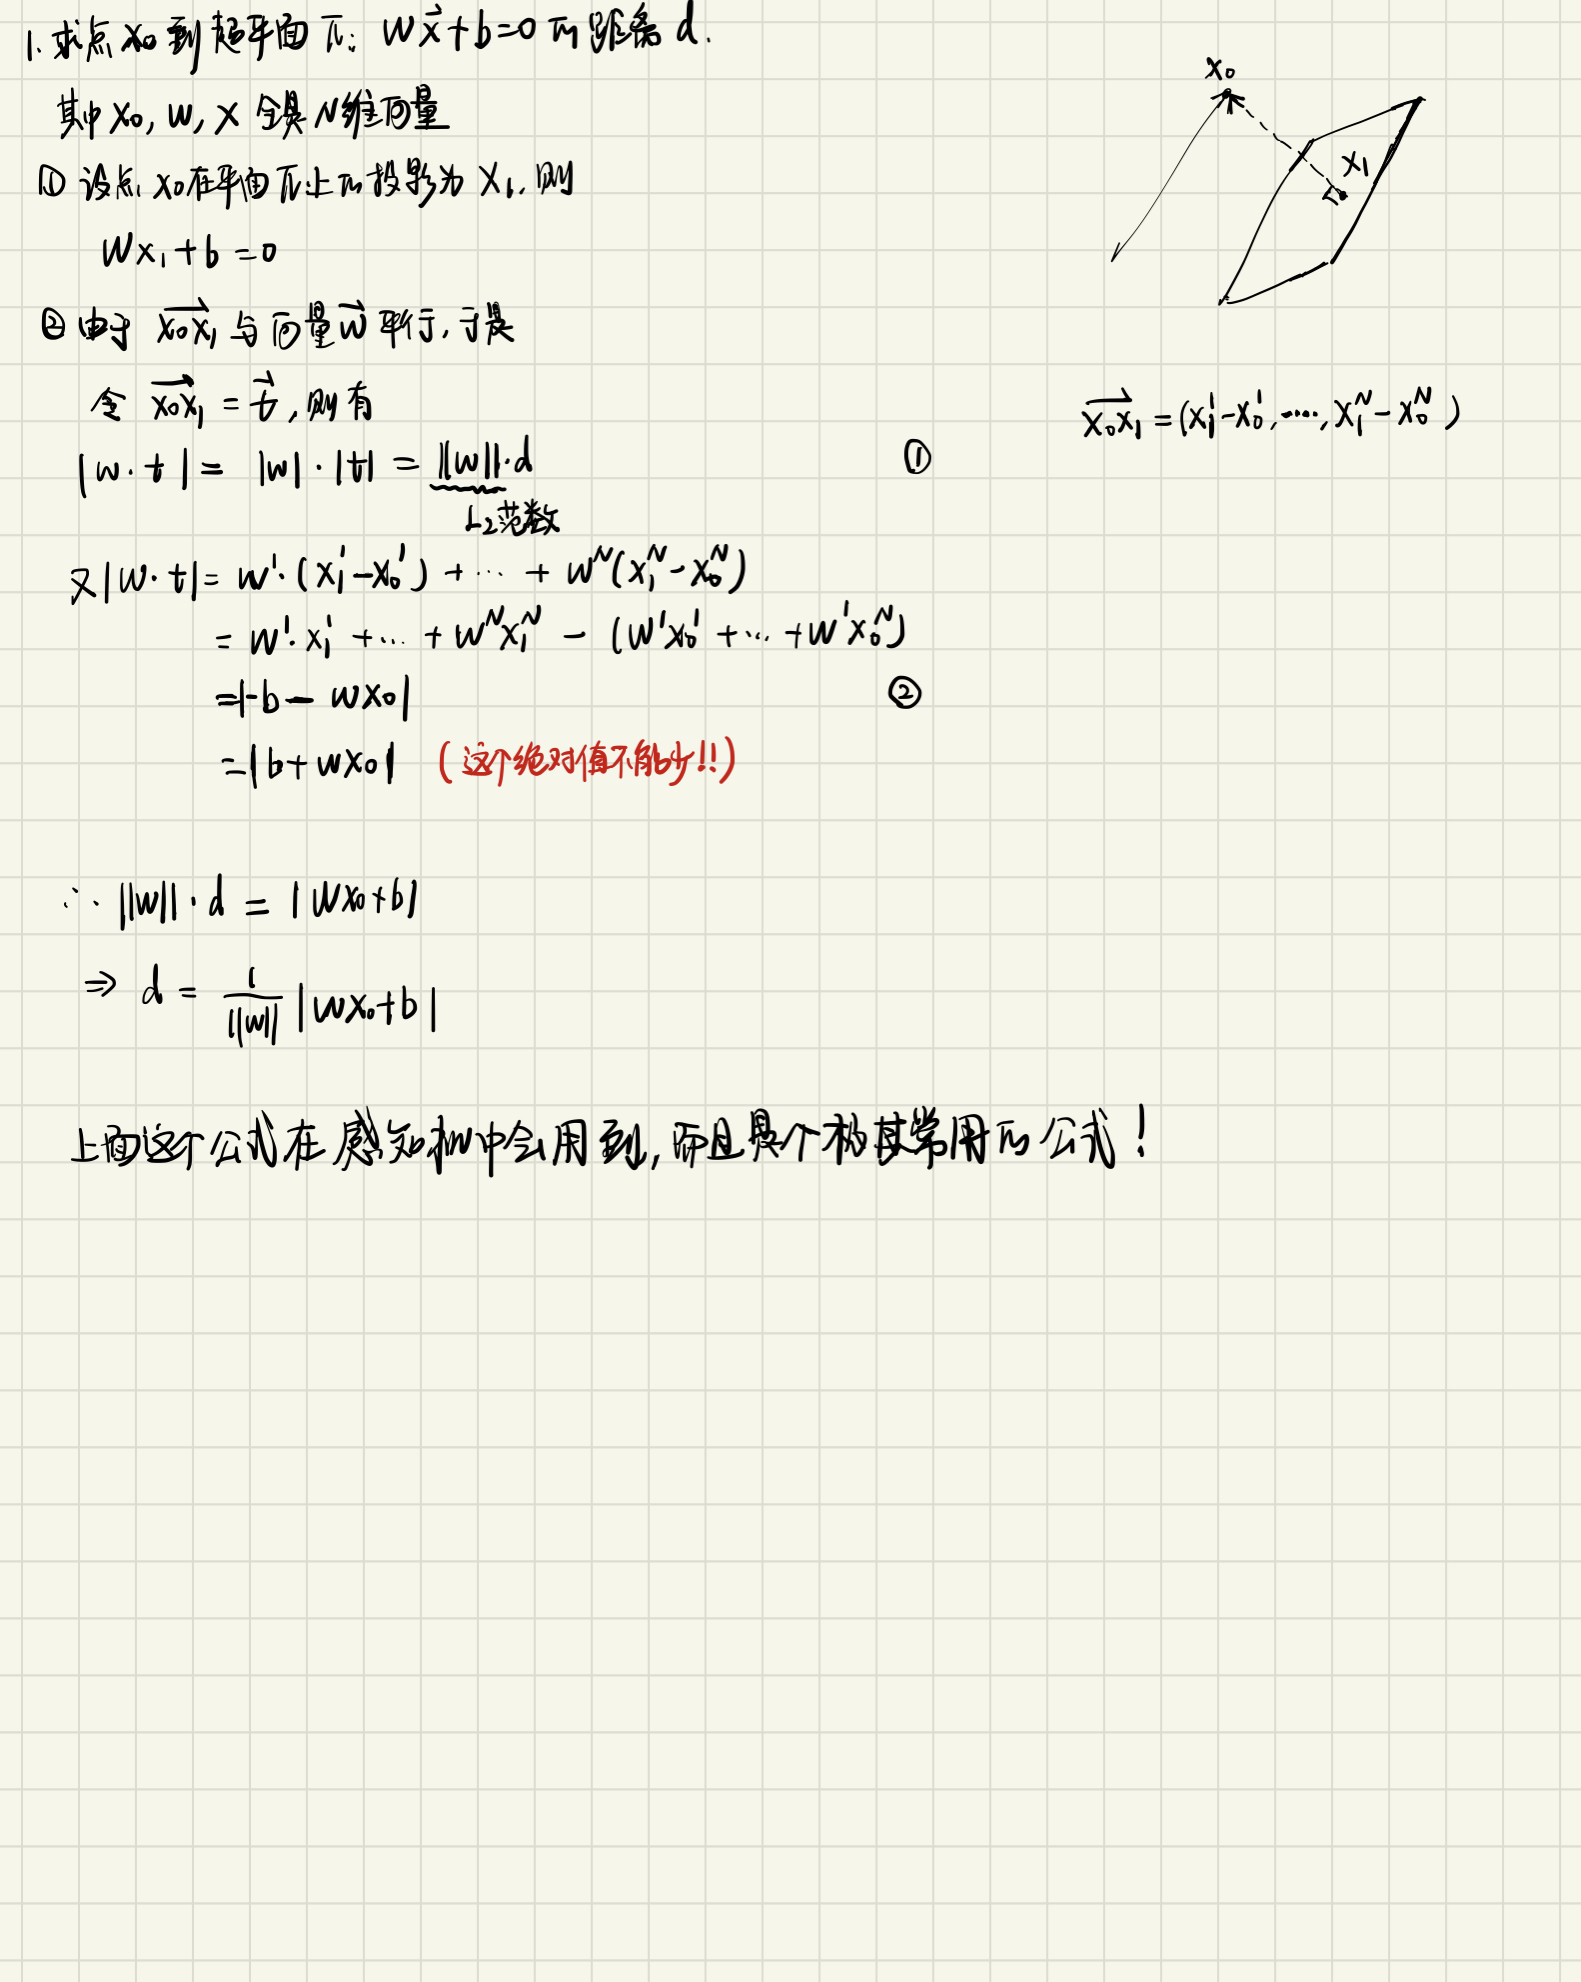 1. 求点 x₀ 到超平面 π: w\vec{x}+b=0 的距离 d.
其中 x₀, w, x 全是 N维向量
① 设点 x₀在平面π上的投影为 x₁, 则
wx₁+b=0
② 由于 \vec{x₀x₁} 与向量\vec{w} 平行, 于是
令 \vec{x₀x₁} = \vec{t}, 则有
|w·t| = |w|·|t| = ||w||·d ①
L₂范数
又|w·t| = w¹·(x₁¹-x₀¹) + ... + w^N(x₁^N-x₀^N)
= w¹·x₁¹ + ... + w^N x₁^N - (w¹x₀¹ + ... + w¹x₀^N)
=|-b-wx₀| ②
=|b+wx₀| (这个绝对值不能少!!)
∴ ||w||·d = |wx₀+b|
⇒ d = \frac{1}{||w||} |wx₀+b|
上面这个公式在感知机中会用到, 而且是个极其常用的公式!
x₀
x₁
\vec{x₀x₁} = (x₁¹-x₀¹, ......, x₁^N-x₀^N)